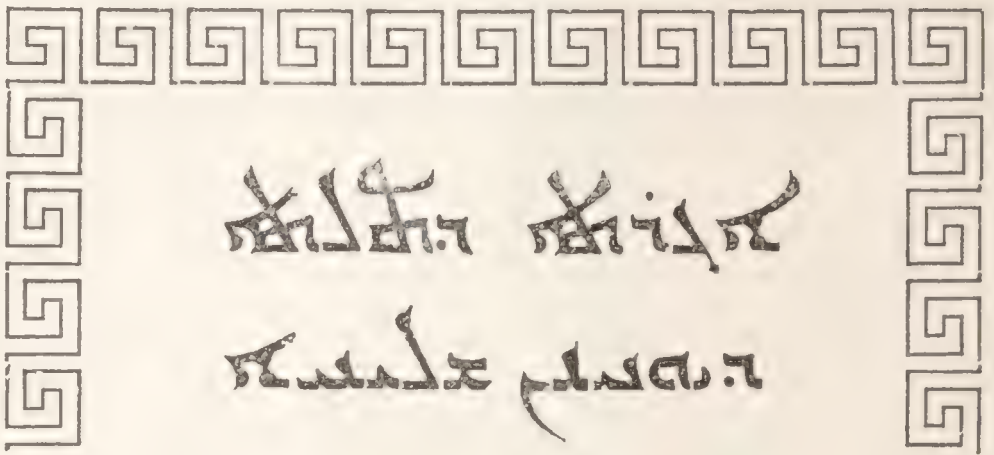 ܐܓܪܬܐ ܕܬܠܬܐ
ܕܝܘܚܢܢ ܫܠܝܚܐ